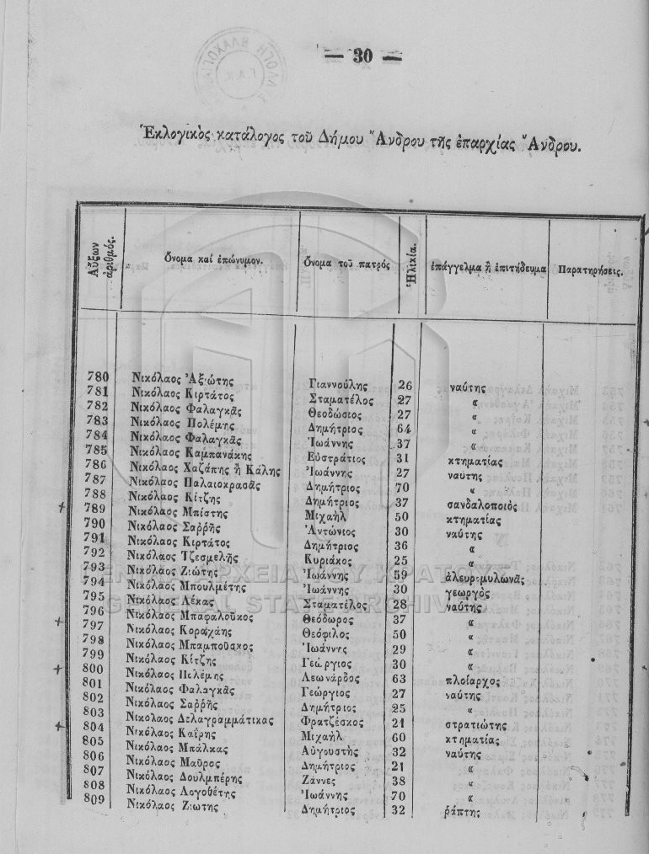 — 30 —
Ἐκλογικὸς κατάλογος τοῦ Δήμου Ἄνδρου τῆς ἐπαρχίας Ἄνδρου.
Αὔξων ἀριθμός. Ὄνομα καὶ ἐπώνυμον. Ὄνομα τοῦ πατρός Ἡλικία. ἐπάγγελμα ἢ ἐπιτήδευμα Παρατηρήσεις.
780 Νικόλαος Ἀξιώτης Γιαννούλης 26 ναύτης
781 Νικόλαος Κιρτάτος Σταματέλος 27 «
782 Νικόλαος Φαλαγκᾶς Θεοδώσιος 27 «
783 Νικόλαος Πολέμης Δημήτριος 64 «
784 Νικόλαος Φαλαγκᾶς Ἰωάννης 37 «
785 Νικόλαος Καμπανάκης Εὐστράτιος 31 κτηματίας
786 Νικόλαος Χαζάπης ἢ Κάλης Ἰωάννης 27 ναύτης
787 Νικόλαος Παλαιοκρασᾶς Δημήτριος 70 «
788 Νικόλαος Κίτζης Δημήτριος 37 σανδαλοποιὸς
789 Νικόλαος Μπίστης Μιχαὴλ 50 κτηματίας
790 Νικόλαος Σαρρῆς Ἀντώνιος 30 ναύτης
791 Νικόλαος Κιρτάτος Δημήτριος 36 «
792 Νικόλαος Τζεσμελῆς Κυριάκος 25 «
793 Νικόλαος Ζιώτης Ἰωάννης 59 ἀλευρομυλωνᾶς
794 Νικόλαος Μπουλμέτης Ἰωάννης 30 γεωργὸς
795 Νικόλαος Λέκας Σταματέλος 28 ναύτης
796 Νικόλαος Μπαφαλοῦκος Θεόδωρος 37 «
797 Νικόλαος Κοραχάης Θεόφιλος 50 «
798 Νικόλαος Μπαμποῦσκος Ἰωάννης 29 «
799 Νικόλαος Κίτζης Γεώργιος 30 «
800 Νικόλαος Πολέμης Λεωνάρδος 63 πλοίαρχος
801 Νικόλαος Φαλαγκᾶς Γεώργιος 27 ναύτης
802 Νικόλαος Σαρρῆς Δημήτριος 25 «
803 Νικόλαος Δελαγραμμάτικας Φρατζέσκος 21 στρατιώτης
804 Νικόλαος Καΐρης Μιχαὴλ 60 κτηματίας
805 Νικόλαος Μπάλκας Αὐγουστὴς 32 ναύτης
806 Νικόλαος Μαῦρος Δημήτριος 21 «
807 Νικόλαος Δουλμπέρης Ζάννες 38 «
808 Νικόλαος Λογοθέτης Ἰωάννης 70 «
809 Νικόλαος Ζιώτης Δημήτριος 32 βάπτης
ΓΕΝΙΚΑ ΑΡΧΕΙΑ ΤΟΥ ΚΡΑΤΟΥΣ
GENERAL STATE ARCHIVES